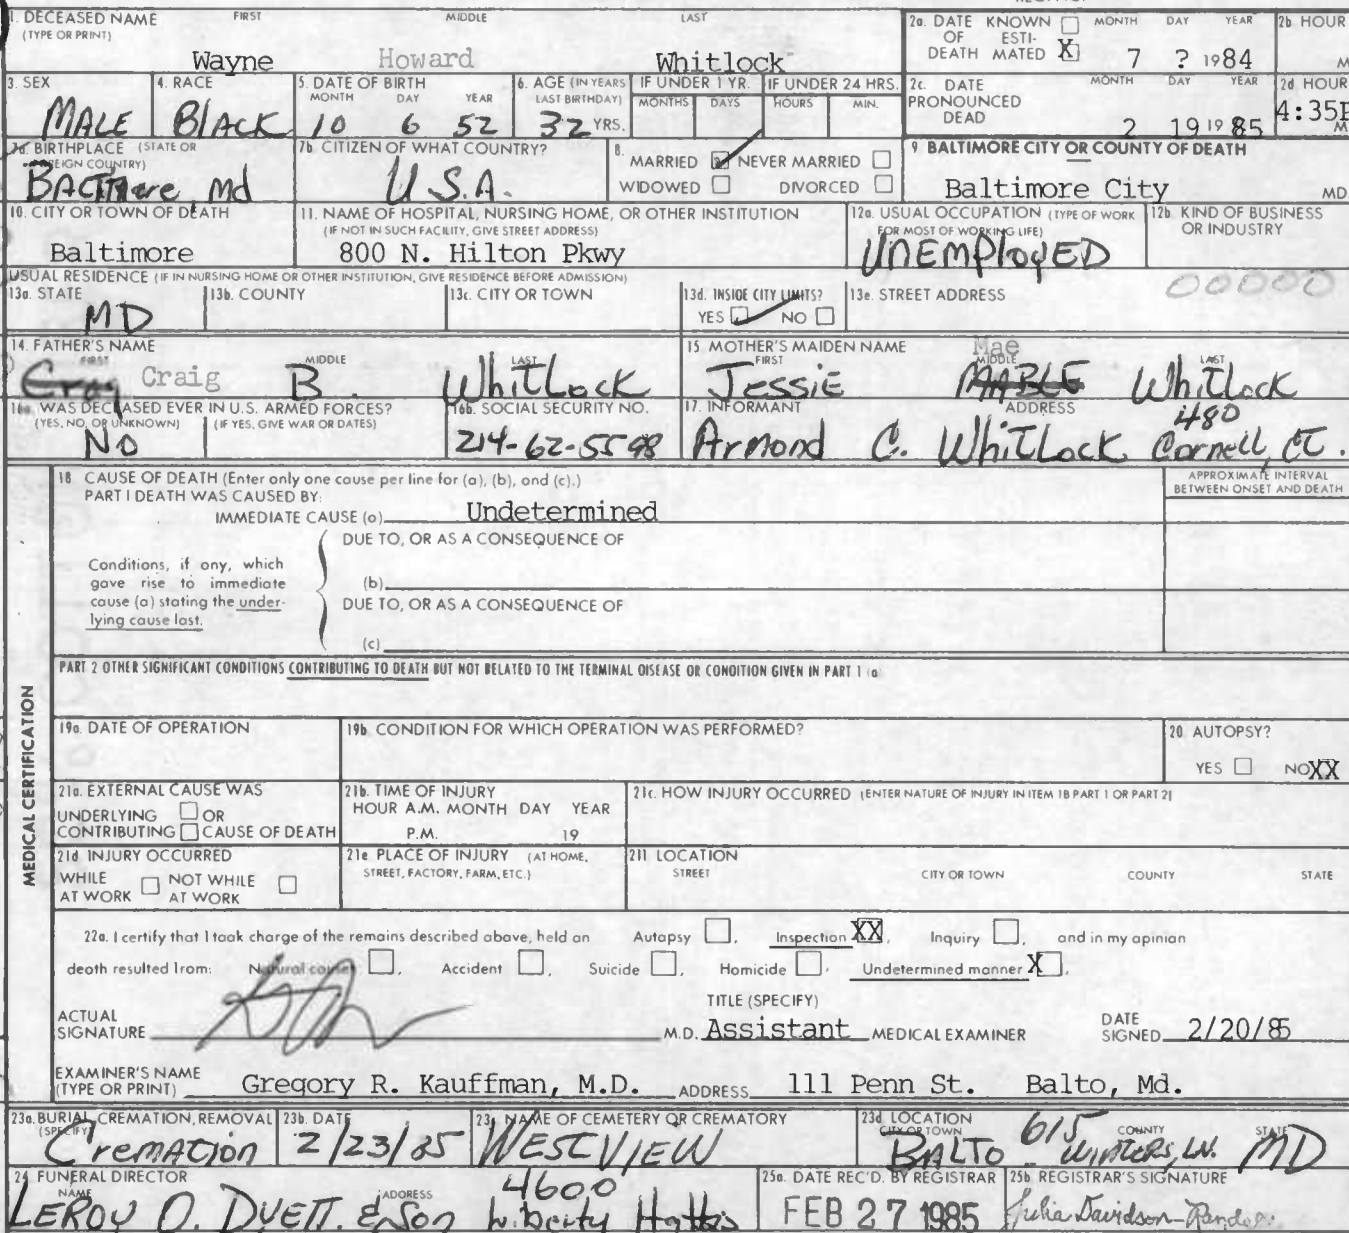 1. DECEASED NAME FIRST MIDDLE LAST
(TYPE OR PRINT)
Wayne Howard Whitlock
2a. DATE OF DEATH KNOWN ESTIMATED X MONTH DAY YEAR
7 ? 1984
2b HOUR
M
3. SEX
MALE
4. RACE
BLACK
5. DATE OF BIRTH
MONTH DAY YEAR
10 6 52
6. AGE (IN YEARS LAST BIRTHDAY)
32 YRS.
IF UNDER 1 YR.
MONTHS DAYS
IF UNDER 24 HRS.
HOURS MIN.
2c. DATE PRONOUNCED DEAD MONTH DAY YEAR
2 19 1985
2d HOUR
4:35P
M
7a BIRTHPLACE (STATE OR FOREIGN COUNTRY)
BALTIMORE, Md
7b. CITIZEN OF WHAT COUNTRY?
U.S.A.
8. MARRIED NEVER MARRIED
WIDOWED DIVORCED
9. BALTIMORE CITY OR COUNTY OF DEATH
Baltimore City MD
10. CITY OR TOWN OF DEATH
Baltimore
11. NAME OF HOSPITAL, NURSING HOME, OR OTHER INSTITUTION
(IF NOT IN SUCH FACILITY, GIVE STREET ADDRESS)
800 N. Hilton Pkwy
12a. USUAL OCCUPATION (TYPE OF WORK
FOR MOST OF WORKING LIFE)
UNEMPloyED
12b. KIND OF BUSINESS
OR INDUSTRY
USUAL RESIDENCE (IF IN NURSING HOME OR OTHER INSTITUTION, GIVE RESIDENCE BEFORE ADMISSION)
13a. STATE
MD
13b. COUNTY
13c. CITY OR TOWN
13d. INSIDE CITY LIMITS?
YES NO
13e. STREET ADDRESS
00000
14. FATHER'S NAME
FIRST MIDDLE LAST
Craig B. WhitLock
15. MOTHER'S MAIDEN NAME
FIRST MIDDLE LAST
Mae
Jessie MABLE Whitlock
16a. WAS DECEASED EVER IN U.S. ARMED FORCES?
(YES, NO, OR UNKNOWN) (IF YES, GIVE WAR OR DATES)
NO
16b. SOCIAL SECURITY NO.
214-62-5598
17. INFORMANT ADDRESS
Armond C. WhitLock 480 Cornell, CT.
18 CAUSE OF DEATH (Enter only one cause per line for (a), (b), and (c).)
PART I DEATH WAS CAUSED BY:
APPROXIMATE INTERVAL
BETWEEN ONSET AND DEATH
IMMEDIATE CAUSE (a) Undetermined
DUE TO, OR AS A CONSEQUENCE OF
Conditions, if any, which
gave rise to immediate
cause (a) stating the under-
lying cause last.
(b)
DUE TO, OR AS A CONSEQUENCE OF
(c)
PART 2 OTHER SIGNIFICANT CONDITIONS CONTRIBUTING TO DEATH BUT NOT RELATED TO THE TERMINAL DISEASE OR CONDITION GIVEN IN PART 1 (a)
MEDICAL CERTIFICATION
19a. DATE OF OPERATION
19b CONDITION FOR WHICH OPERATION WAS PERFORMED?
20 AUTOPSY?
YES NO XX
21a. EXTERNAL CAUSE WAS
UNDERLYING OR
CONTRIBUTING CAUSE OF DEATH
21b. TIME OF INJURY
HOUR A.M. MONTH DAY YEAR
P.M. 19
21c. HOW INJURY OCCURRED (ENTER NATURE OF INJURY IN ITEM 18 PART 1 OR PART 2)
21d INJURY OCCURRED
WHILE AT WORK NOT WHILE AT WORK
21e PLACE OF INJURY (AT HOME,
STREET, FACTORY, FARM, ETC.)
21f LOCATION
STREET CITY OR TOWN COUNTY STATE
22a. I certify that I took charge of the remains described above, held an Autopsy, Inspection XX, Inquiry, and in my opinion
death resulted from: Natural causes, Accident, Suicide, Homicide, Undetermined manner X,
TITLE (SPECIFY)
ACTUAL
SIGNATURE M.D. Assistant MEDICAL EXAMINER DATE SIGNED 2/20/85
EXAMINER'S NAME
(TYPE OR PRINT) Gregory R. Kauffman, M.D. ADDRESS 111 Penn St. Balto, Md.
23a. BURIAL, CREMATION, REMOVAL
(SPECIFY)
CremATion
23b. DATE
2/23/85
23c. NAME OF CEMETERY OR CREMATORY
WESTVIEW
23d LOCATION
CITY OR TOWN COUNTY STATE
BALTO 615 WINTERS, LN. MD
24 FUNERAL DIRECTOR
NAME ADDRESS
LEROY O. DYETT. & Son 4600 Liberty Hgts
25a. DATE REC'D. BY REGISTRAR
FEB 27 1985
25b REGISTRAR'S SIGNATURE
Julia Davidson-Randall